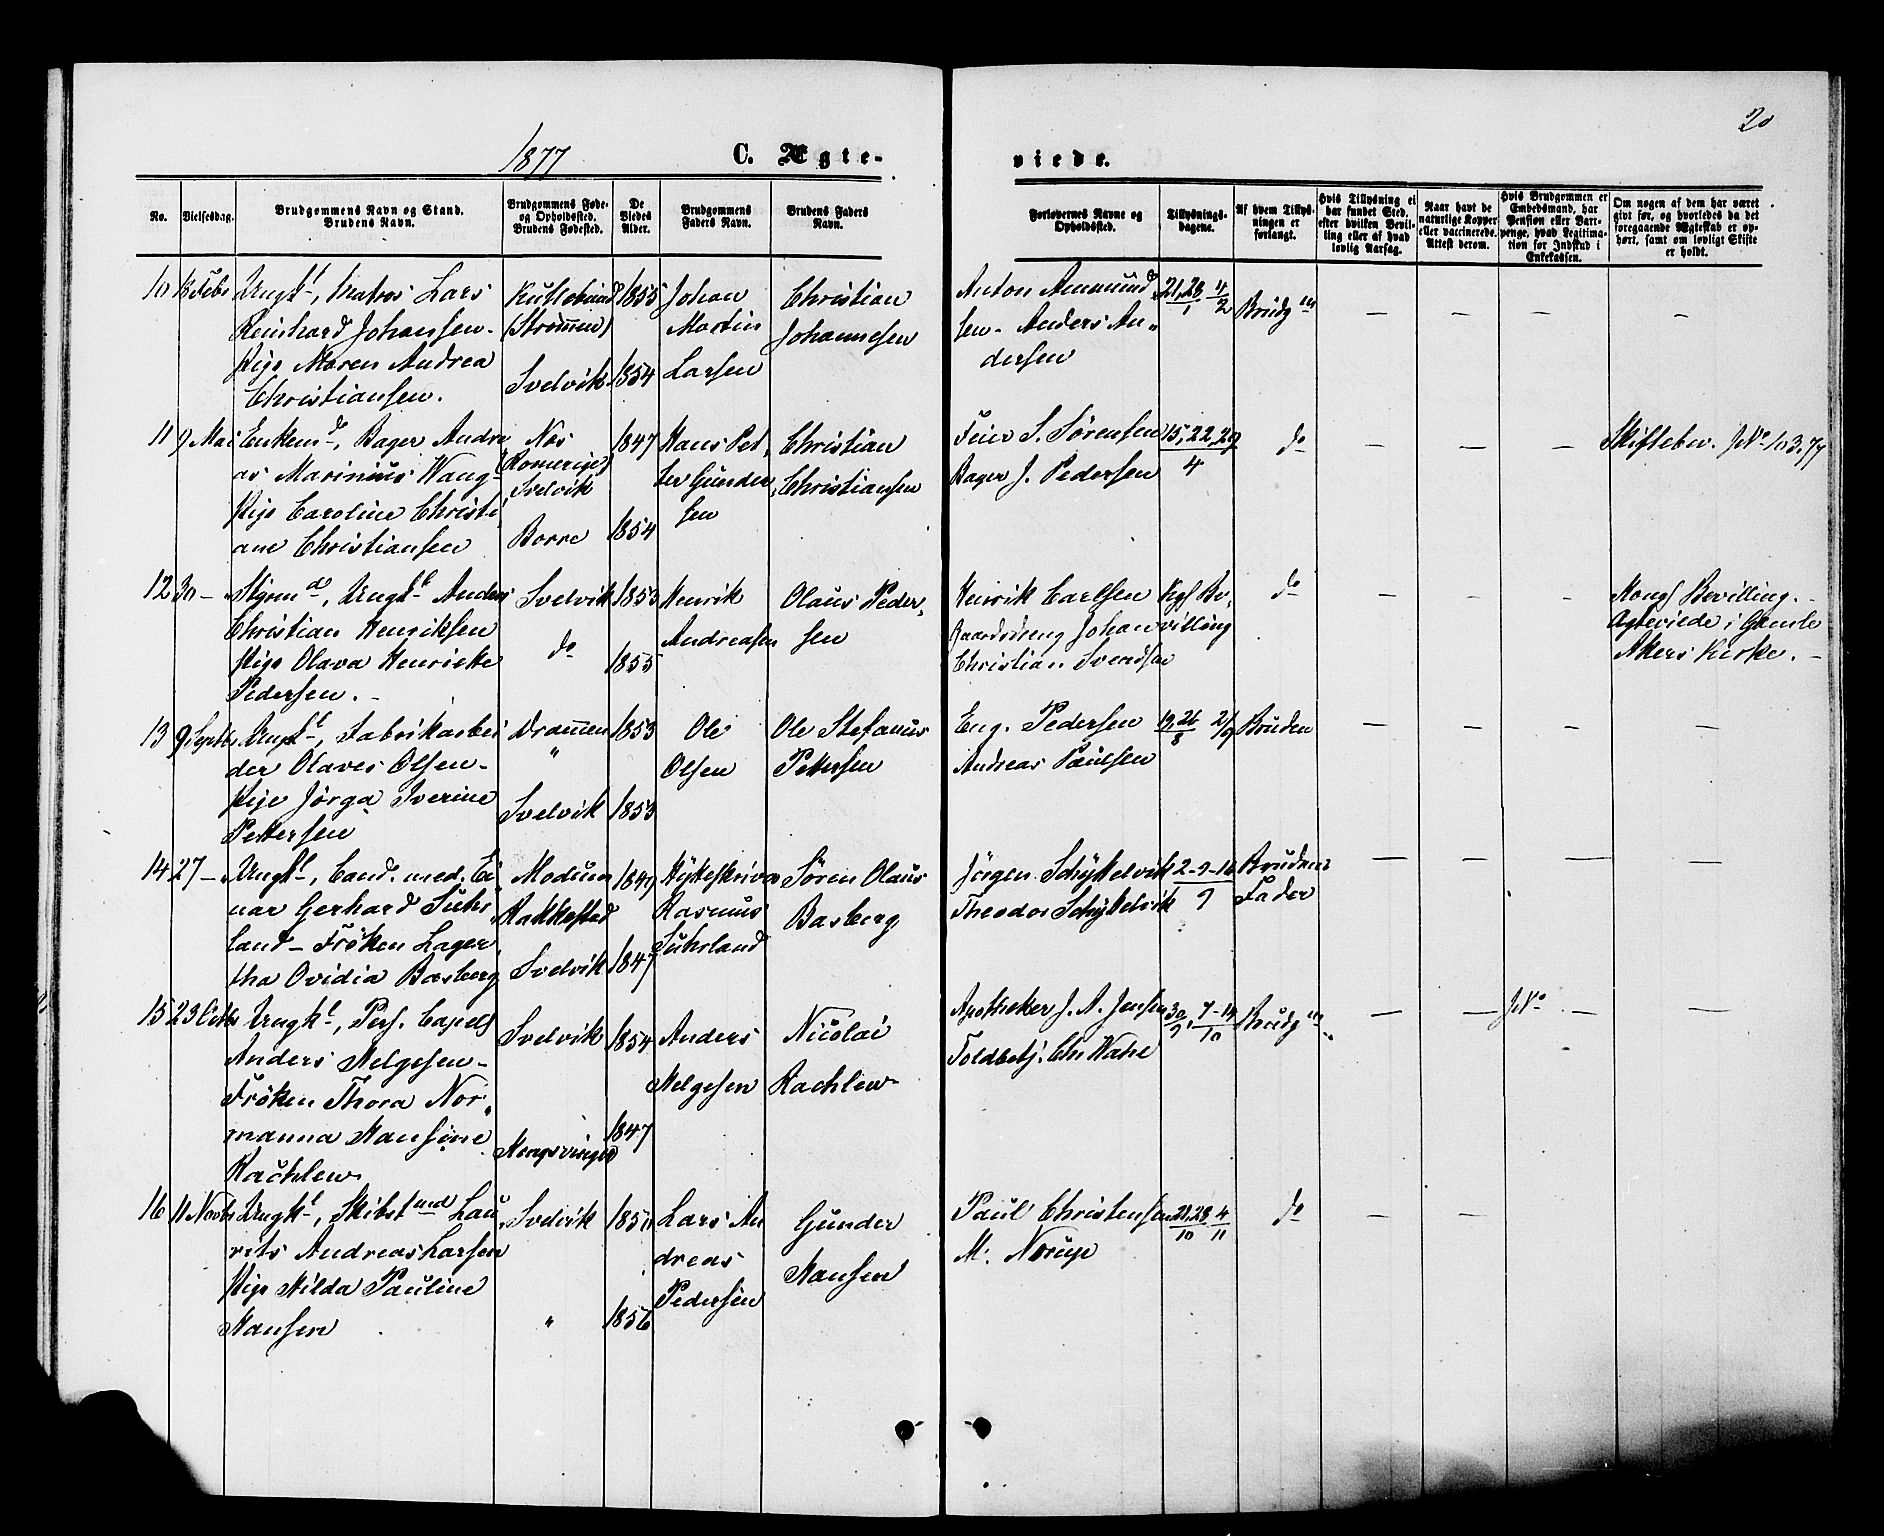 20
1877 C. Ægte-
viede.
No. Vielsesdag. Brudgommens Navn og Stand. Brudens Navn. Brudgommens Føde- og Opholdssted. Brudens Fødested. De Viedes Alder. Brudgommens Faders Navn. Brudens Faders Navn.
Forlovernes Navne og Opholdssted. Tillysnings-dagene. Af hvem Tillys-ningen er forlangt. Hvis Tillysning ei har fundet Sted, efter hvilken Bevil-ling eller af hvad lovlig Aarsag. Naar havt de naturlige Kopper eller vaccinerede. Attest derom. Hvis Brudgommen er Embedsmand, har Pension eller Vart-penge, hvad Legitima-tion for Indskud i Enkekassen. Om nogen af dem har været givt før, og hvorledes da det foregaaende Ægteskab er op-hørt, samt om lovligt Skifte er holdt.
10 Febr Ungk., Matros Lars Kulsebund 1855 Johan Christian Anton Amund 21, 28/1 4/2 Brudgm — — — —
Reinhard Johansen- (Strømmen) Martin Johannesen sen- Anders An-
Pige Maren Andrea Svelvik 1854 Larsen dersen
Christiansen.
11 9 Mai Enkemd, Bager Andre Nes 1847 Hans Pet Christian Feier S. Sørensen 15, 22, 29/4 do — — — Skiftebev. JNo 103.77
as Marinius Wang- (Romerige) ter Gunder Christiansen Bager J. Pedersen
Svelvik
Pige Caroline Christi sen
ane Christiansen Borre 1854
12 30 — Styrmd, Ungk. Anders Svelvik 1853 Henrik Olaus Peder- Henrik Carlsen Kgl Be- do — — — Kongl Bevilling. —
Christian Henriksen Andreasen sen Gaardsdreng Johan villing Ægteviede i Gamle
Pige Olava Henrikke do 1855 Christian Svendsen Akers Kirke. —
Pedersen. —
13 9 Septbr Ungk., Fabrikarbei Drammen 1853 Ole Ole Stefanus Eng. Pedersen 19, 26/8 2/9 Bruden — — — —
der Olaves Olsen- " Olsen Pettersen Andreas Paulsen
Pige Jørga Iverine Svelvik 1853
Pettersen
14 27 — Ungk., Cand. med. Ei Modum 1849 Søren Olaus Jørgen 2-9-16/9 Brudens — — — —
nar Gerhard Suhr Rakkestad Rasmus Basberg Theodor Fader
land- Frøken Lager Svelvik 1847 Suhrland
tha Ovidia Basberg
15 23 Octbr Ungk., Svelvik 1854 Anders Nicolai Apotheker J. A. Jensen 30/9, 7-14/10 Brudgm — — JNo — —
Anders Helgesen- Helgesen Rachlew Toldbetj. Chr
Frøken Thora Nor-
manna Hansine Kongsvinger 1847
Rachlew
16 11 Novbr Ungk., Skibstmd Lau Svelvik Lars An Gunder Paul Christensen 21, 28/10 4/11 do — —
rits Andreas Larsen dreas Hansen M. Norup
Pige Hilda Pauline Pedersen
Hansen " 1856